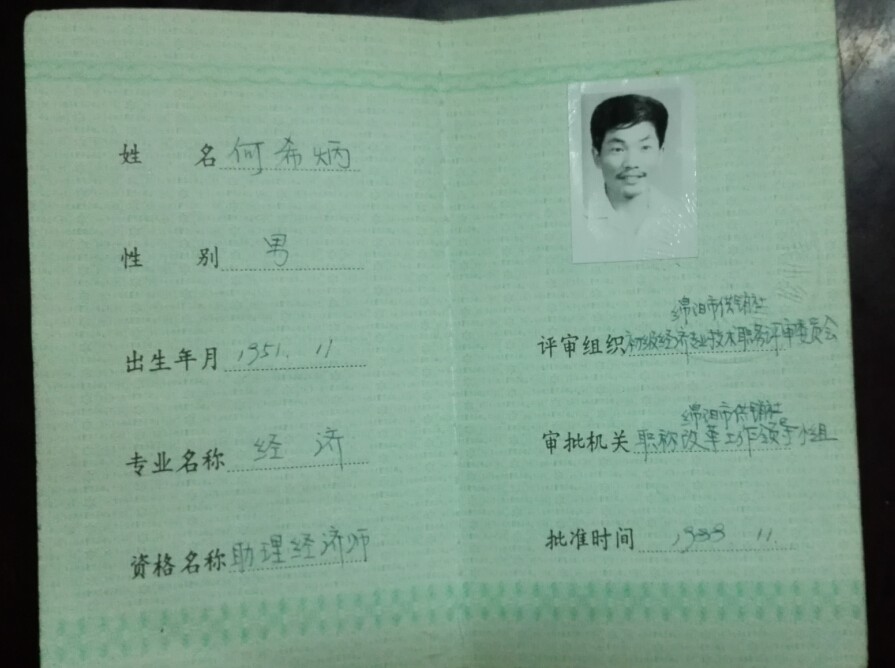 姓 名 何希炳
性 别 男
出生年月 1951. 11
专业名称 经 济
资格名称 助理经济师
绵阳市供销社
评审组织 初级经济专业技术职务评审委员会
绵阳市供销社
审批机关 职称改革工作领导小组
批准时间 1988 11.